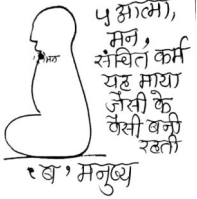 मन
५ आत्मा,
मन,
संचित कर्म
यह माया
जैसी के
वैसी बनी
रहती
'ब' मनुष्य